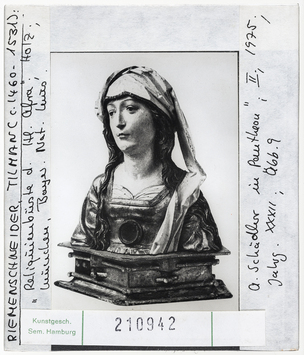 RIEMENSCHNEIDER, TILMAN (c. 1460-1531):
"Reliquienbüste d. Hl. Afra", Holz;
München, Bayr. Nat. Mus.;
A. Schädler in "Pantheon"; II, 1975,
Jahrg. XXXII; Abb. 9
Kunstgesch.
Sem. Hamburg
210942